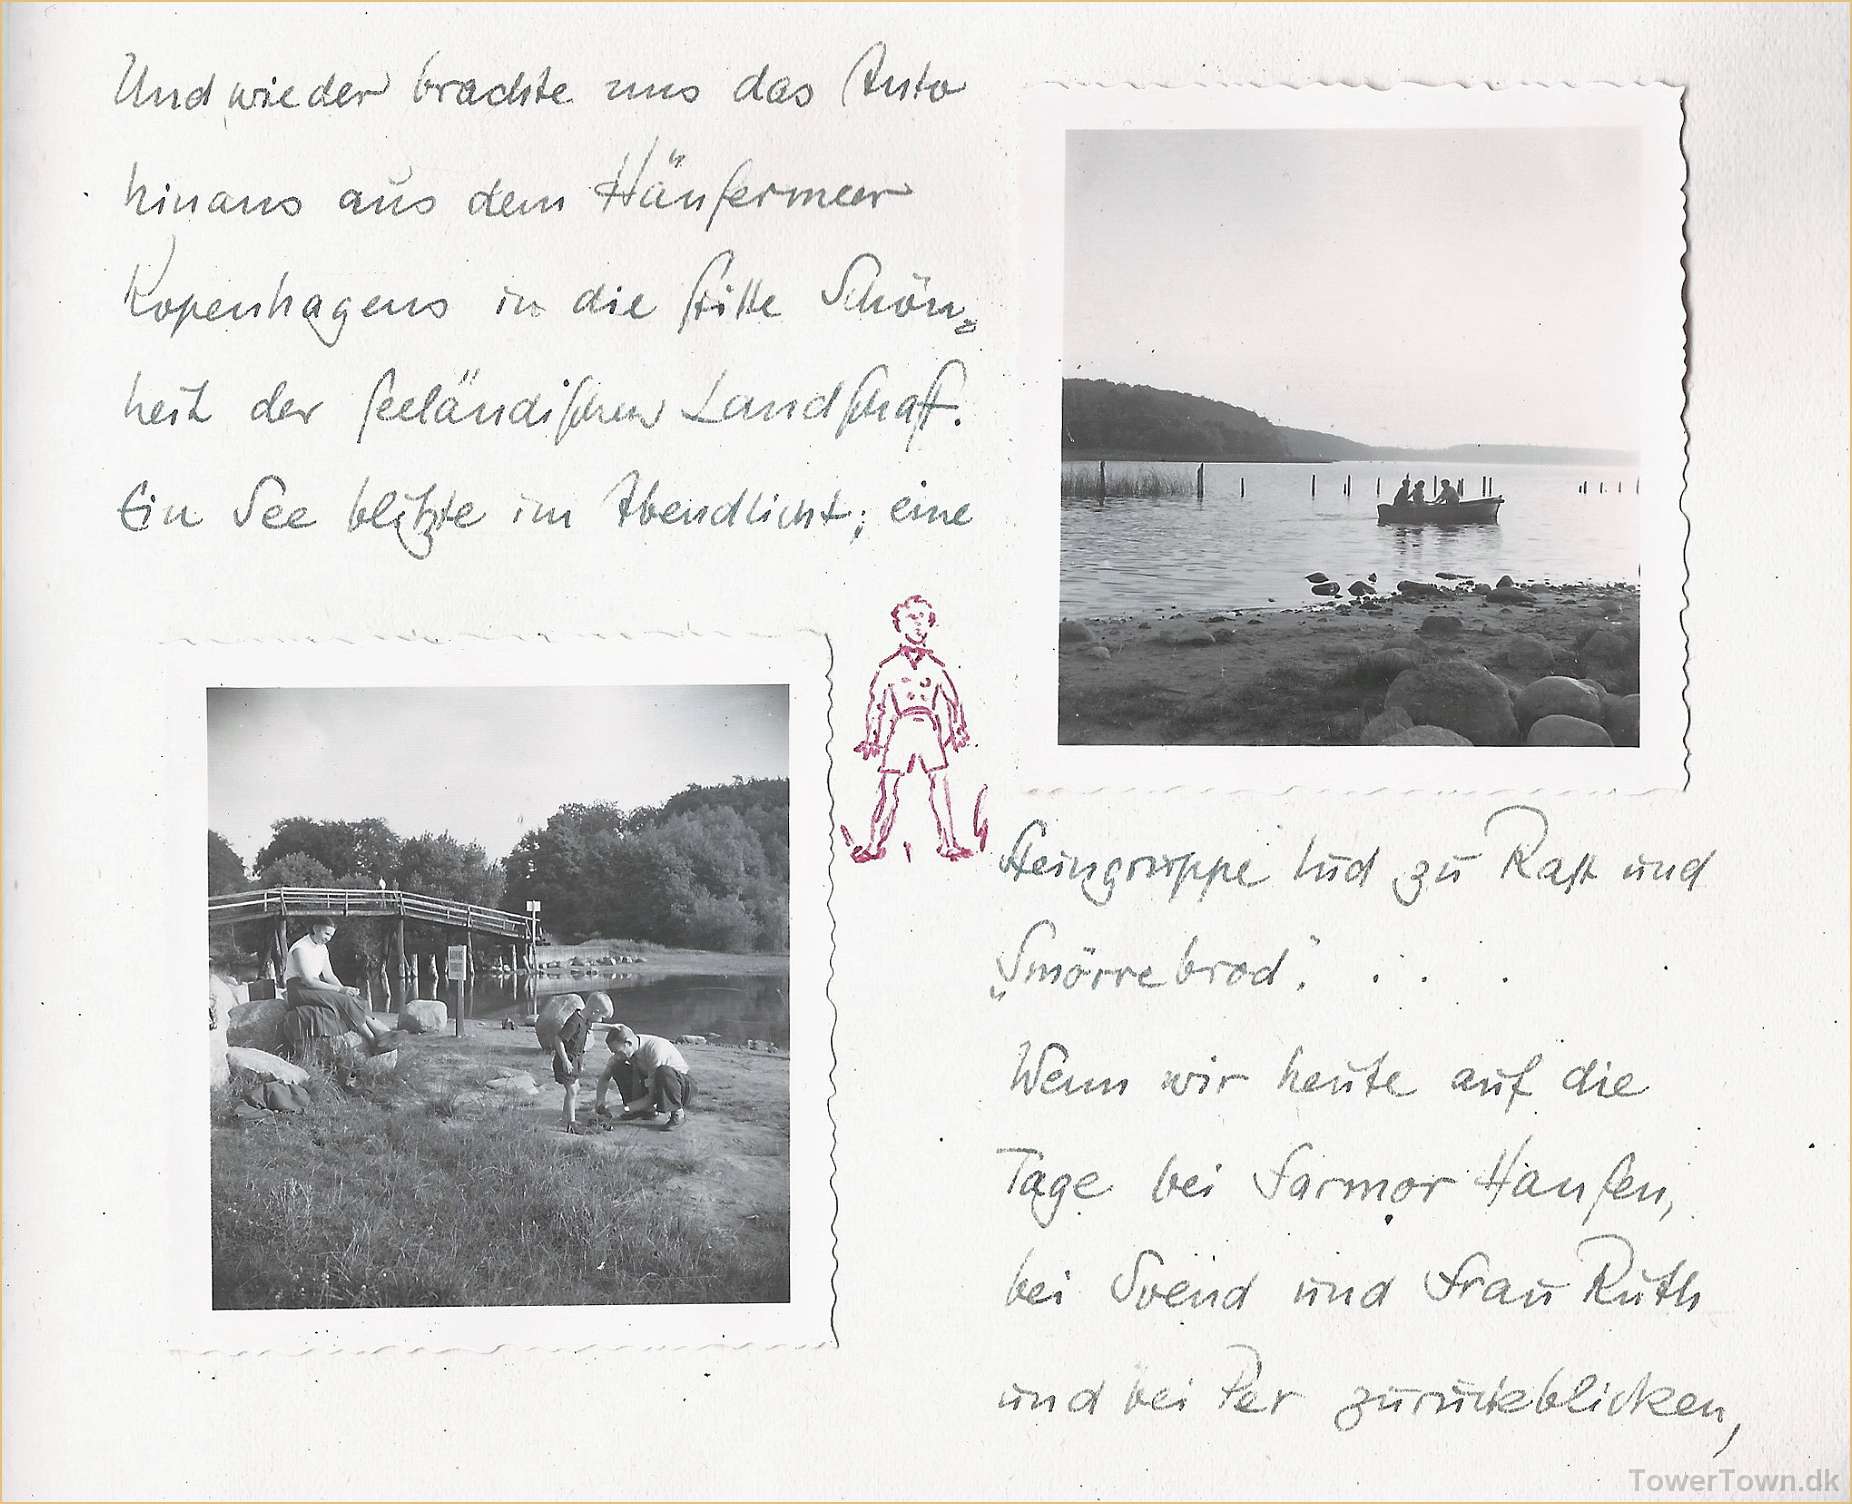 Und wieder brachte uns das Auto
hinaus aus dem Häusermeer
Kopenhagens in die stille Schön=
heit der seeländischen Landschaft.
Ein See blitzte im Abendlicht; eine
Steingruppe lud zu Rast und
„Smörrebrod". . . .
Wenn wir heute auf die
Tage bei Farmor Hansen,
bei Svend und Frau Ruth
und bei Per zurückblicken,
TowerTown.dk